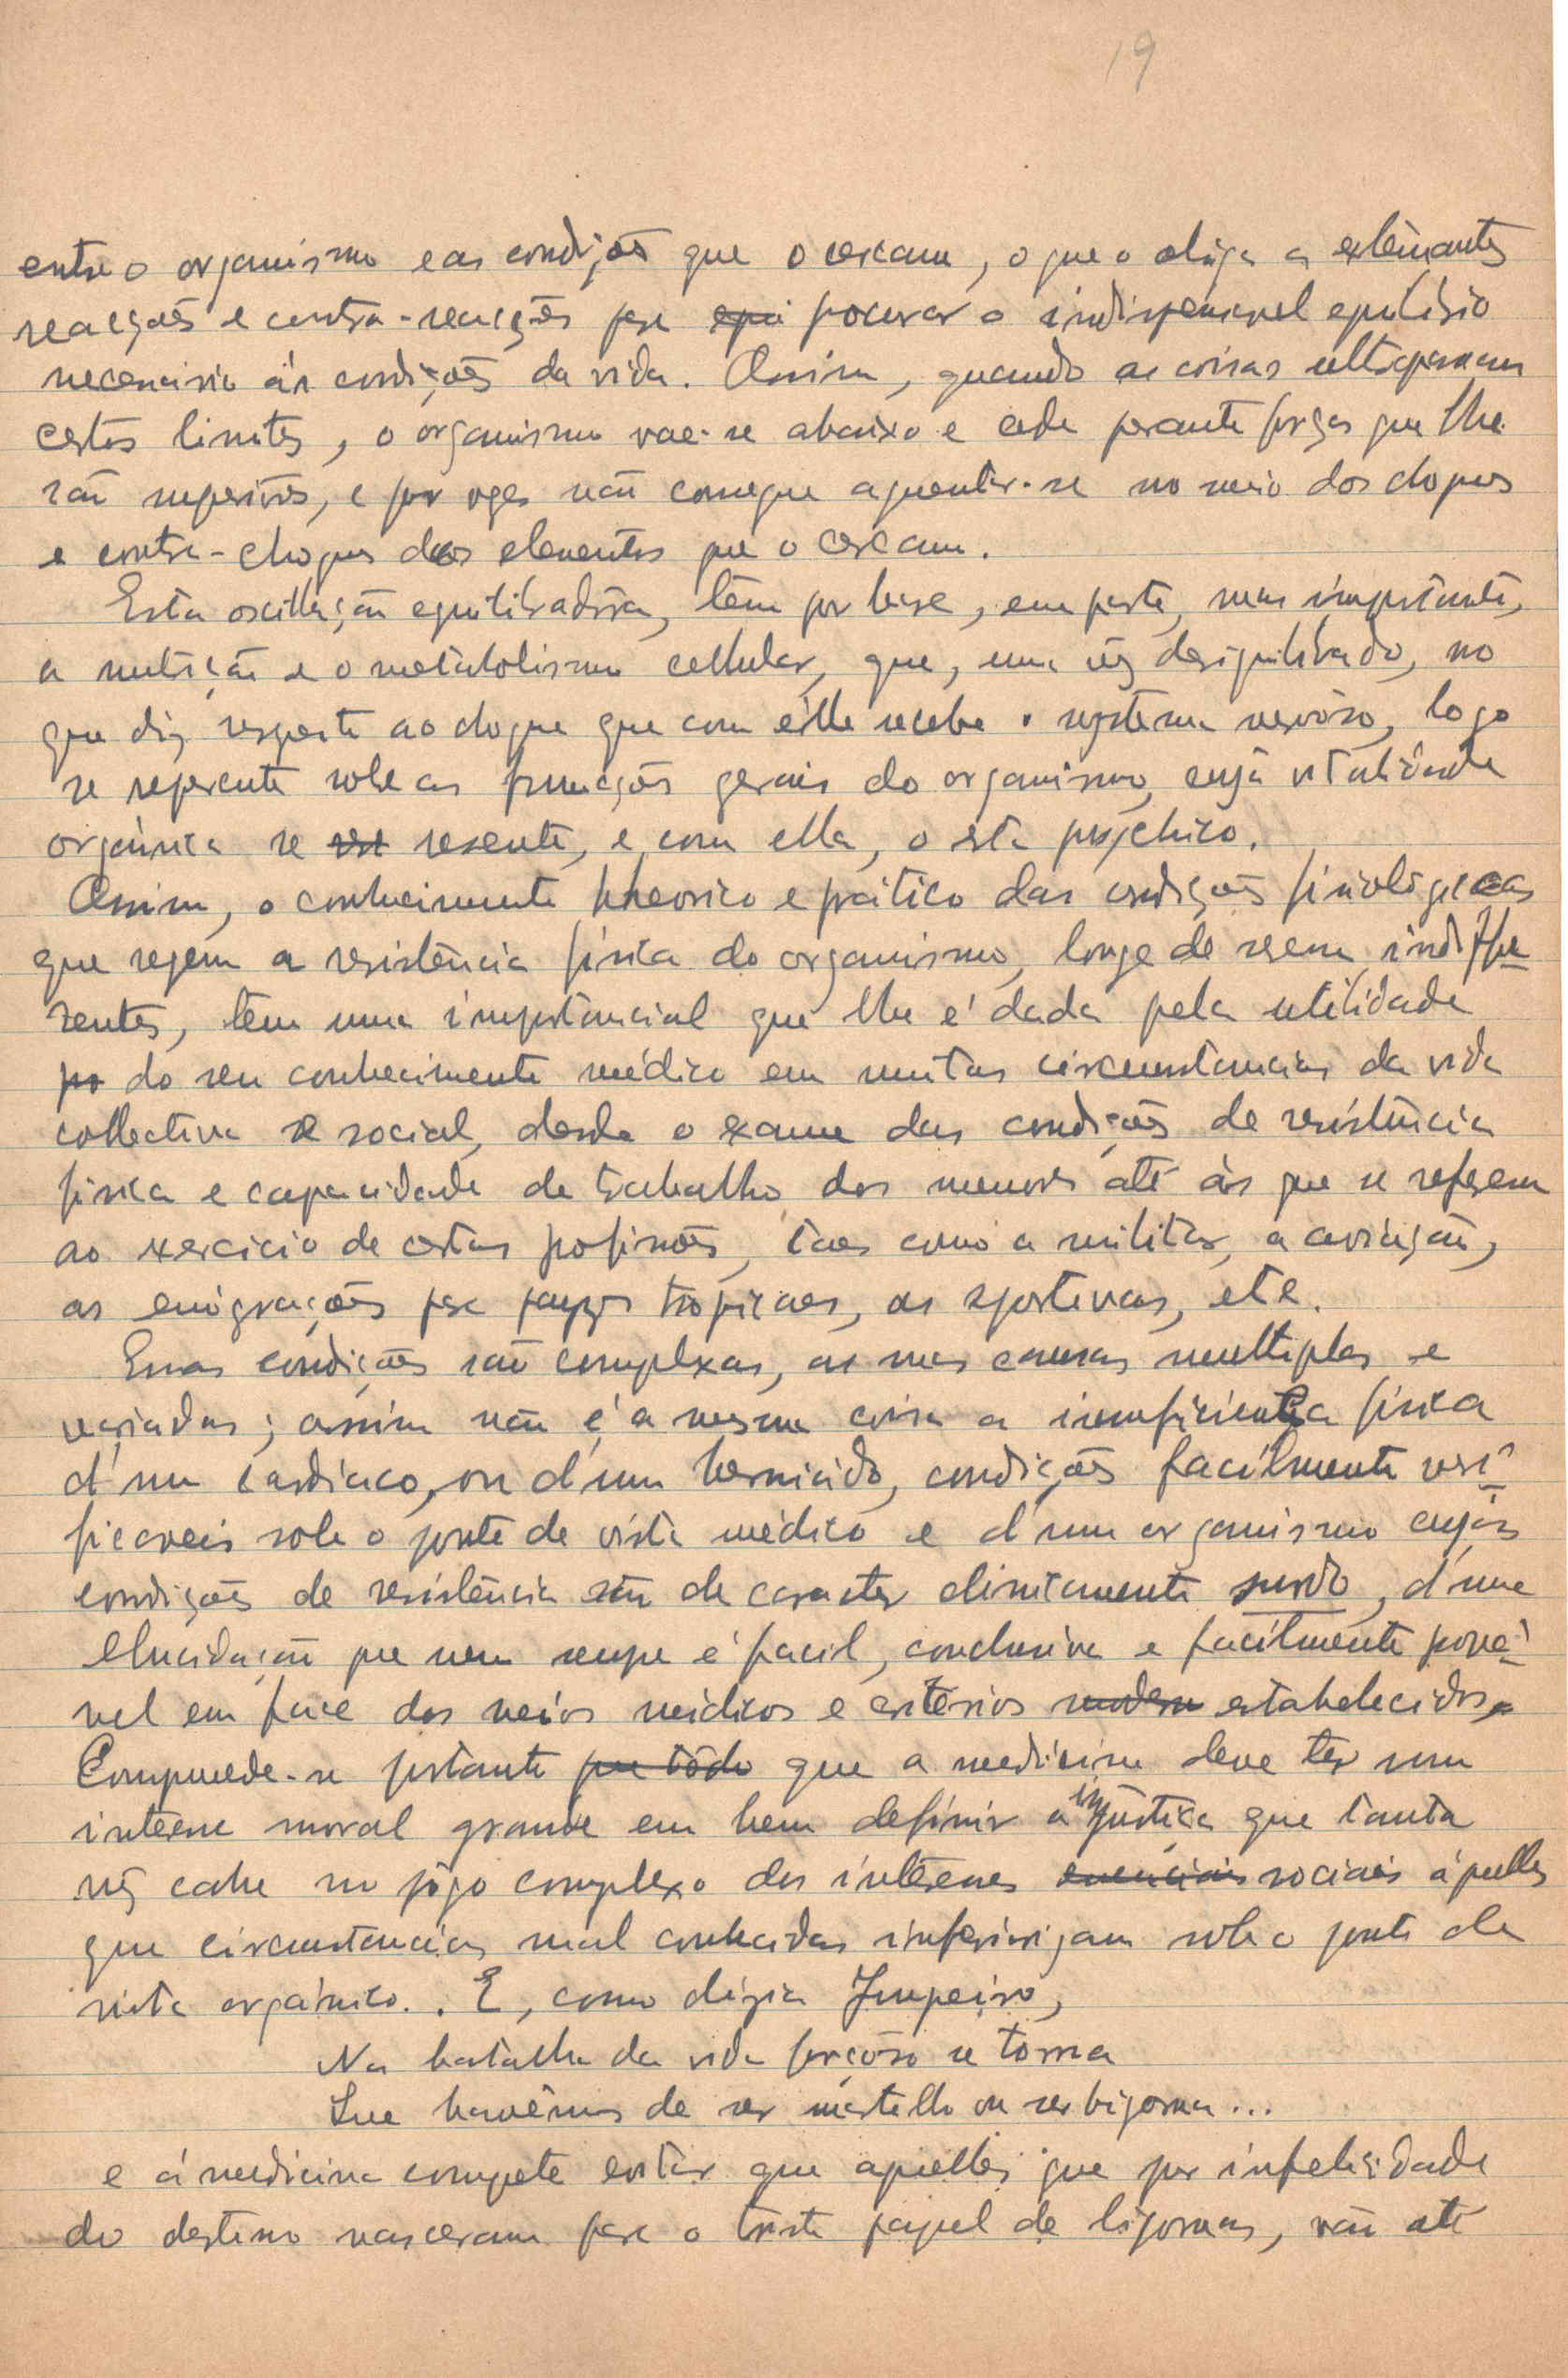 19
entre o organismo e as condições que o cercam, o que o obriga a
reacções e contra-reacções para procurar o indispensavel equilibrio
necessario ás condições da vida. Assim, quando as coisas ultrapassam
certos limites, o organismo vae-se abaixo e cede perante forças que lhe
são superiores, e por vezes não consegue aguentar-se no meio dos choques
e contra-choques dos elementos que o cercam.
Esta oscillação equilibradora, têm por base, em parte, mas importante,
a nutrição e o metabolismo cellular, que, uma vêz desiquilibrado, no
que diz respeito ao choque que com êlle recebe o systema nervôso, logo
se repercute sobre as funcções gerais do organismo, cuja vitalidade
orgânica se resente, e com ella, o psychico.
Assim, o conhecimento theorico e prático das condições fisiologicas
que regem a resistência fisica do organismo, longe de serem indiffe-
rentes, têm uma importancia que lhe é dada pela utilidade
do seu conhecimento médico em muitas circumstancias da vida
collectiva e social, desde o exame das condições de resistência
fisica e capacidade de trabalho dos menores até ás que se referem
ao exercicio de certas profissões, taes como a militar, a aviação,
as emigrações para payzes tropicaes, as sportivas, etc.
Essas condições são complexas, as suas causas multiplas e
variadas; assim não é a mesma coisa a insuficiencia fisica
d'um cardiaco, ou d'um herniado, condições facilmente veri-
ficaveis sob o ponto de vista médico e d'um organismo cujas
condições de resistência são de caracter clinicamente surdo, d'uma
elucidação que nem sempre é facil, conclusiva e facilmente prova-
vel em face dos meios médicos e critérios estabelecidos.
Comprende-se portanto que a medicina deve ter um
interesse moral grande em bem definir a injustiça que tanta
vêz cabe no jôgo complexo dos interesses sociais áquelles
que circumstancias mal conhecidas inferiorizam sob o ponto de
vista orgánico.. E, como dizia Junqeiro,
Na batalha da vida forçôso se torna
Que havêmos de ser martello ou ser bigorna...
e á medicina compete evitar que aquelles que por infelicidade
do destino nasceram para o triste papel de bigornas, vão até